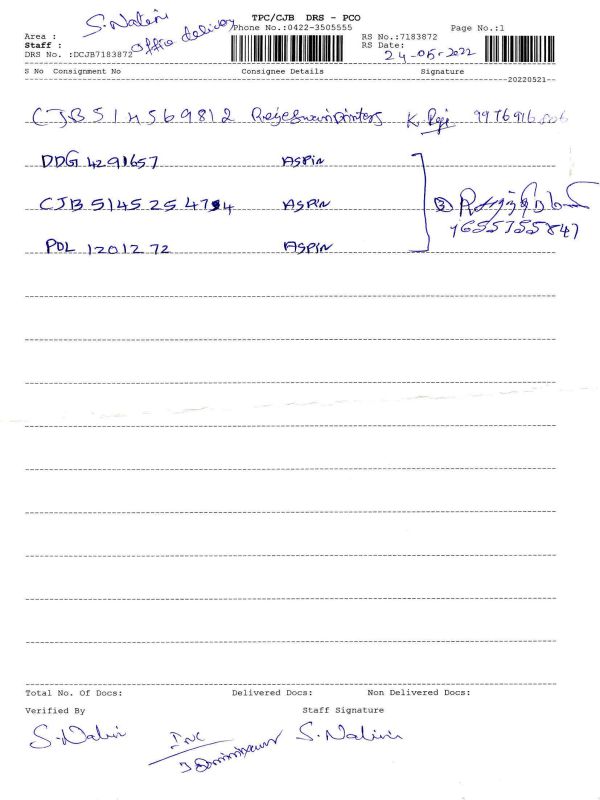 S. Nalini
office delivery
TPC/CJB DRS - PCO
Phone No.:0422-3505555
Page No.:1
Area :
RS No.:7183872
Staff :
RS Date:
24-05-2022
DRS No. :DCJB7183872
S No Consignment No Consignee Details Signature
20220521
CJB 514569812 K. Raji
DDG 4291657 ASPIN
CJB 5145254734 ASPIN
PDL 1201272 ASPIN
Total No. Of Docs: Delivered Docs: Non Delivered Docs:
Verified By Staff Signature
S. Nalini S. Nalini